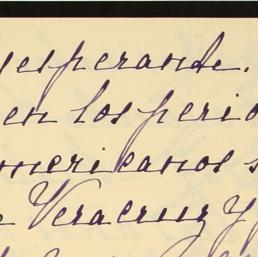 y esperando.
en los perio
mericanos s
Veracruz y